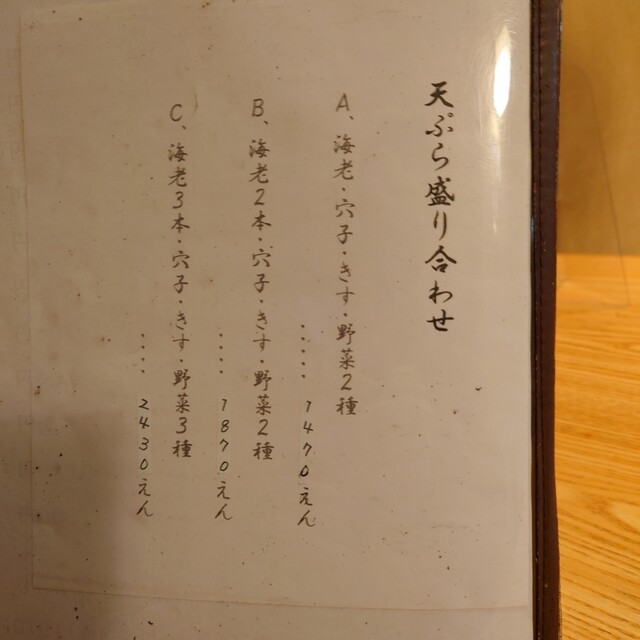 天ぷら盛り合わせ
A、海老・穴子・きす・野菜2種
‥‥1470えん
B、海老2本・穴子・きす・野菜2種
‥‥1870えん
C、海老3本・穴子・きす・野菜3種
‥‥2430えん